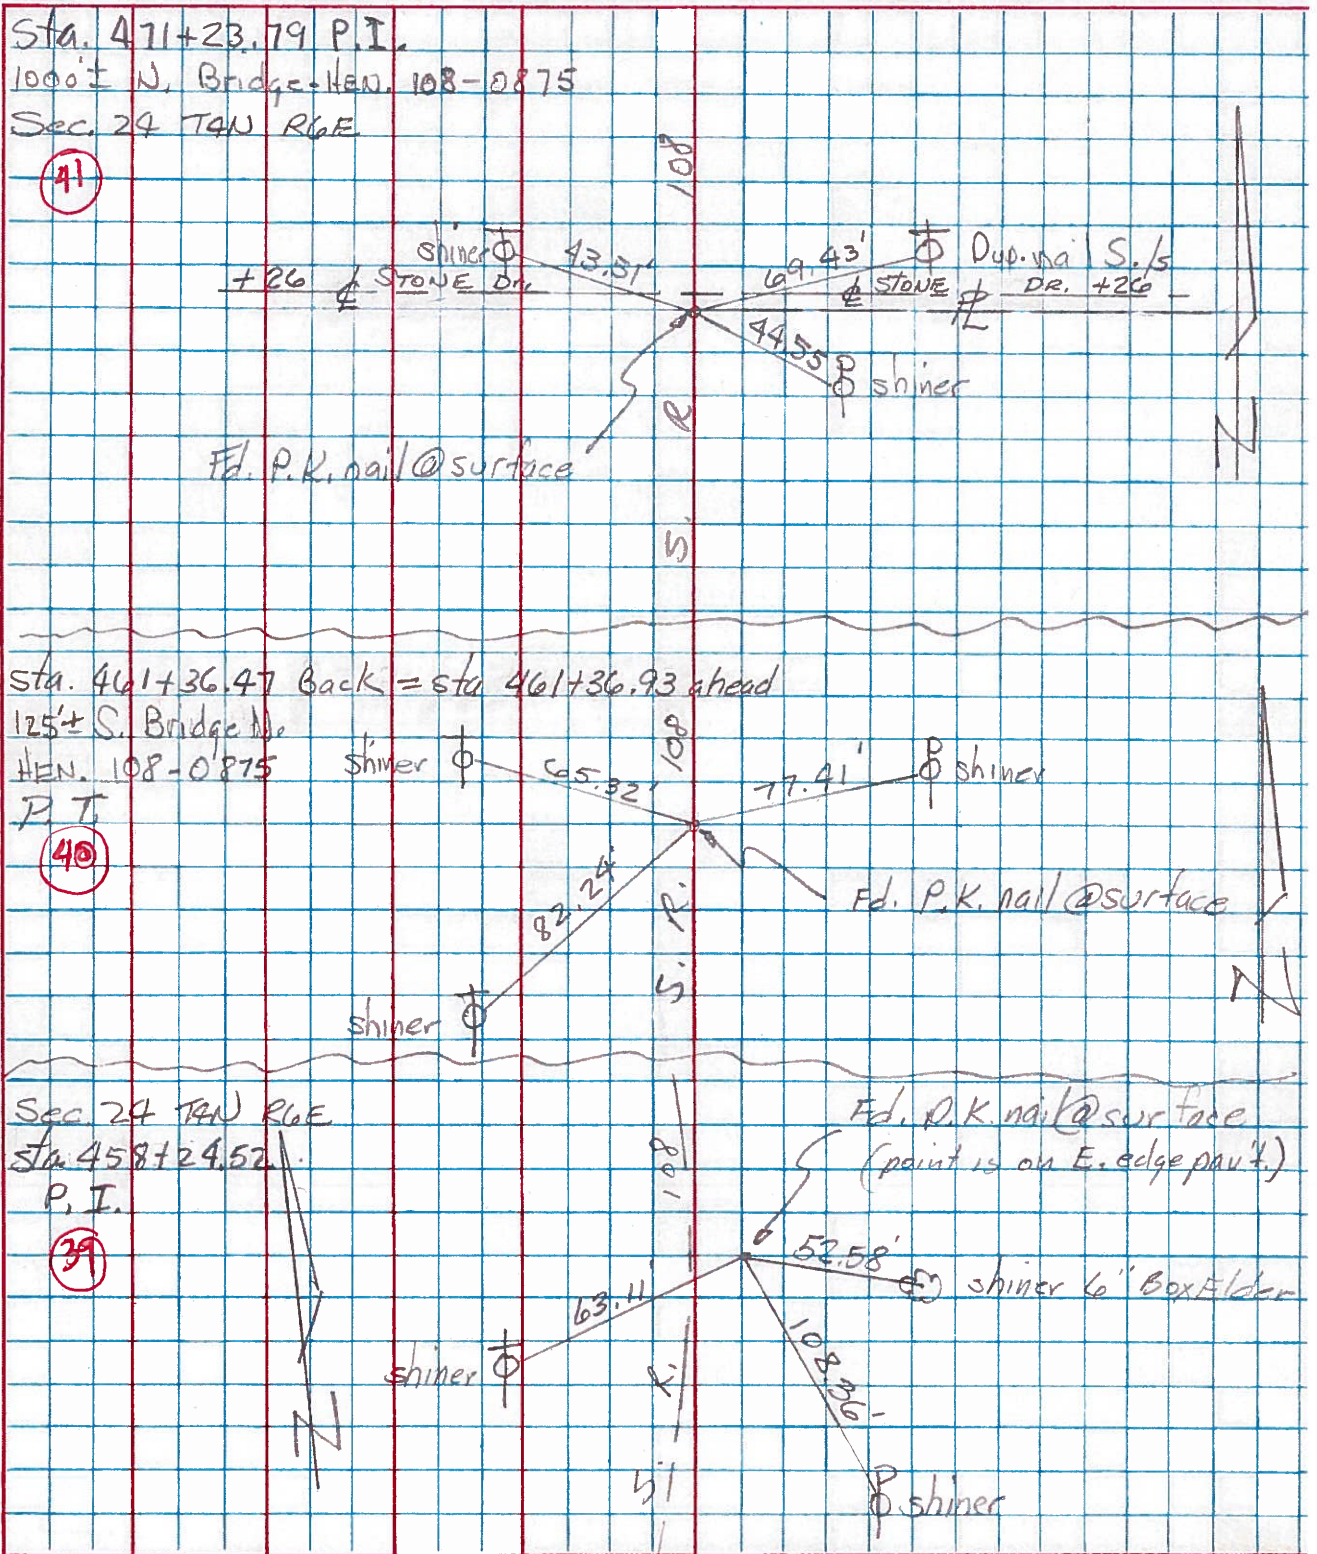 Sta. 471+23.79 P.I.
1000'± N. Bridge-HEN. 108-0875
Sec. 24 T4N R6E
41
108
shiner
43.51'
69.43'
Dup. nail S./s
+26 ℄ STONE Dr.
℄ STONE DR. +26
PL
44.55
shiner
R
N
Fd. P.K. nail @ surface
S.
sta. 461+36.47 Back = sta 461+36.93 ahead
125'± S. Bridge No.
HEN. 108-0875
P.T.
40
108
shiner
65.32'
77.41'
shiner
82.24'
R.
Fd. P.K. nail @ surface
S.
N
shiner
Sec. 24 T4N R6E
sta 458+24.52
P.I.
39
108
Fd. P.K. nail @ surface
(point is on E. edge pav't.)
52.58'
shiner 6" Box Elder
63.11'
108.36'
shiner
R.
N
S
shiner